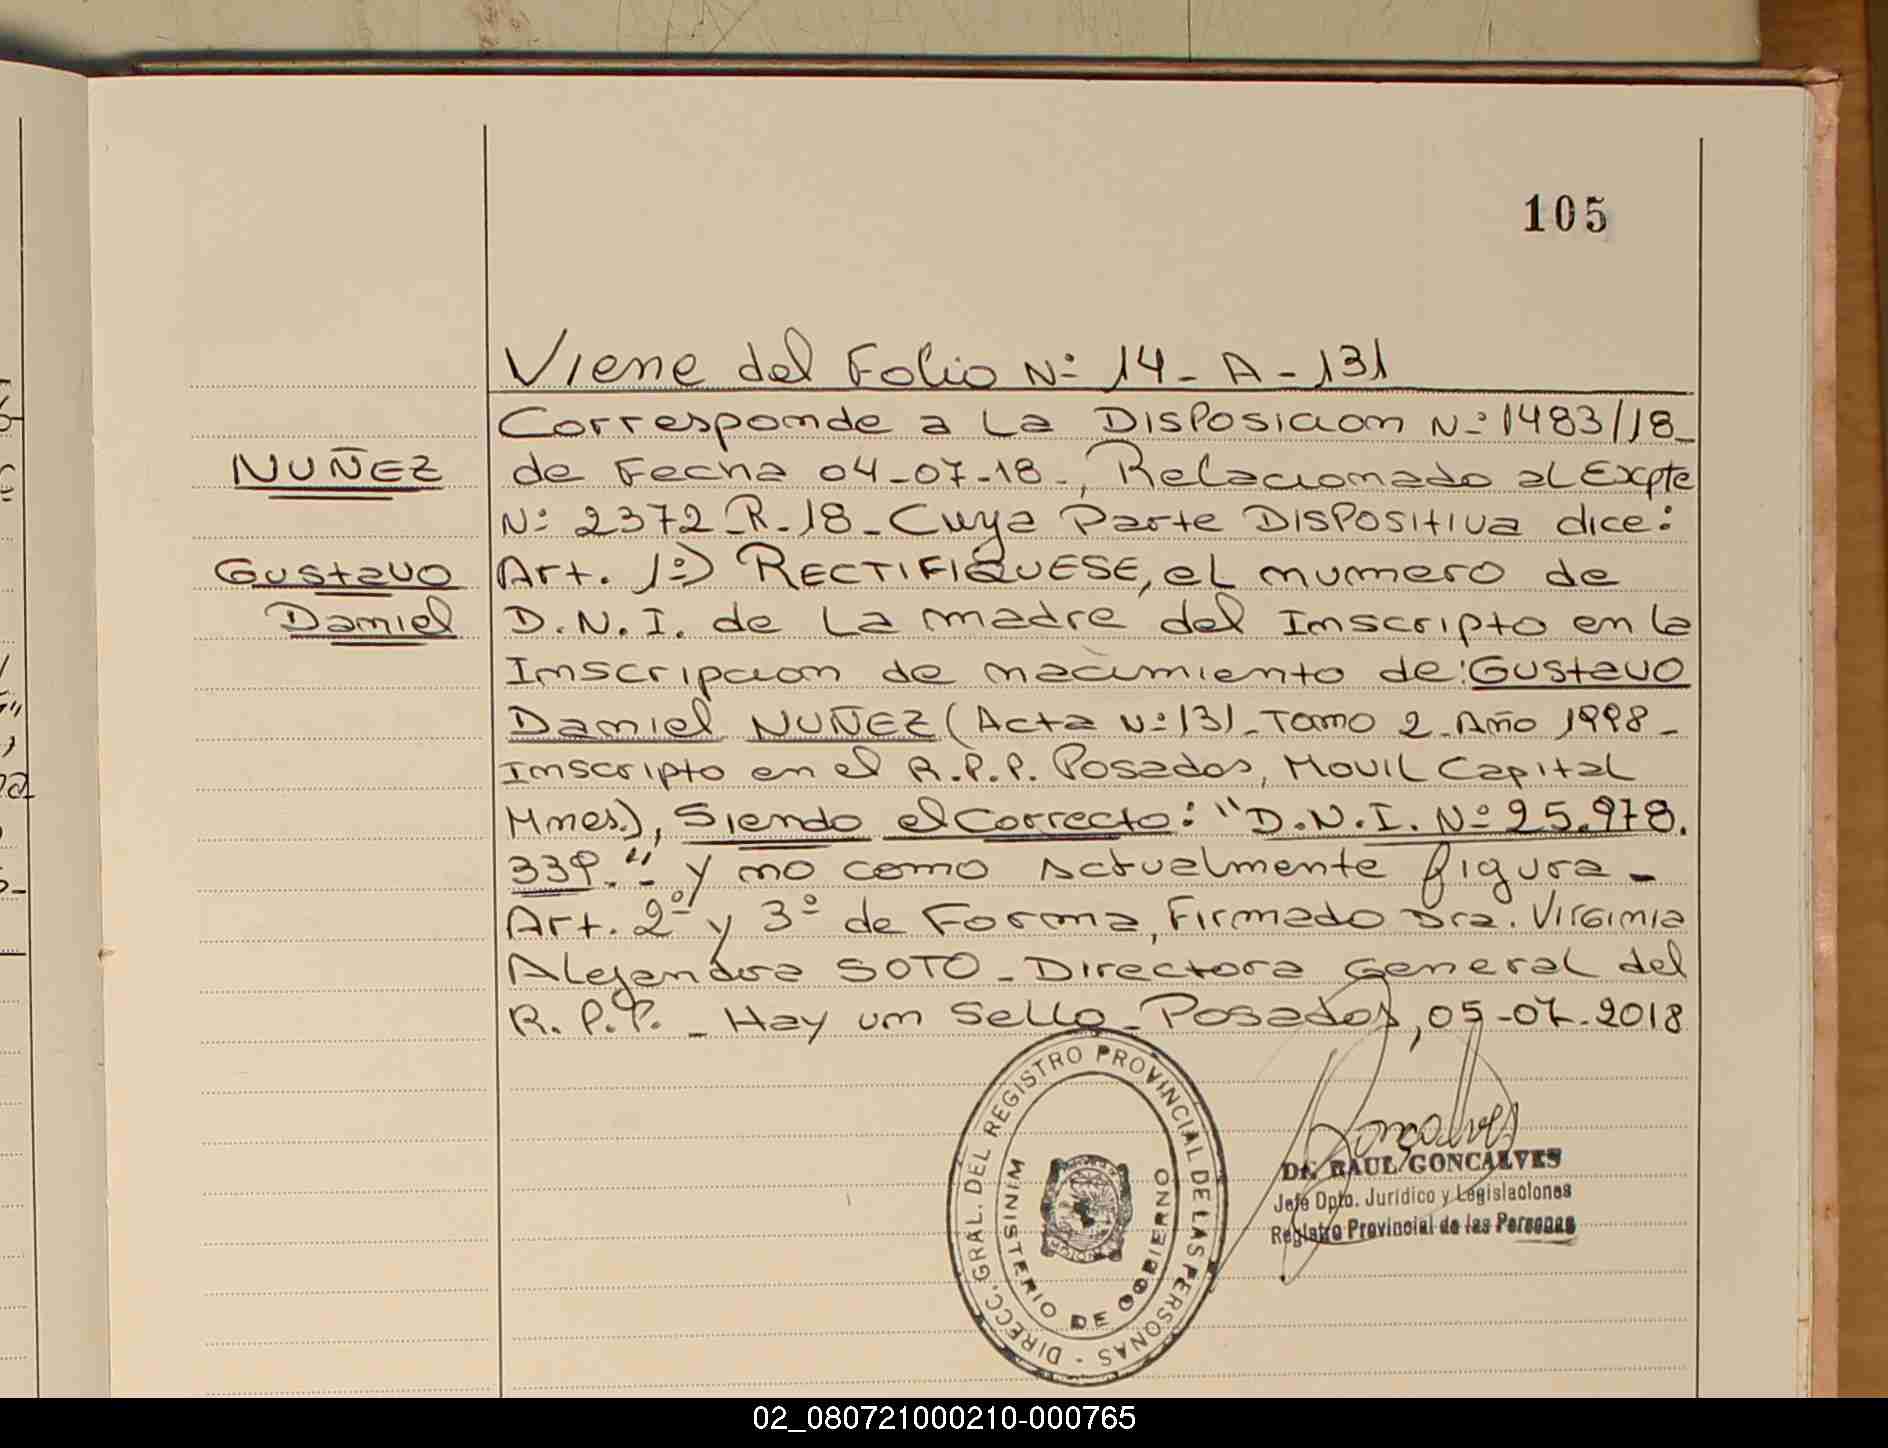 105
Viene del Folio Nº 14 - A - 131
Corresponde a La Disposicion Nº 1483/18-
NUÑEZ
de Fecha 04-07-18-, Relacionado al Expte
Nº 2372-R-18- Cuya Parte Dispositiva dice:
Gustavo
Art. 1º) RECTIFIQUESE, el numero de
Daniel
D.N.I. de La madre del Inscripto en la
Inscripcion de nacimiento de: Gustavo
Daniel NUÑEZ (Acta Nº 131- Tomo 2- Año 1998-
Inscripto en el R.P.P. Posadas, Movil Capital
Mnes.), Siendo el Correcto: "D.N.I. Nº 25.978.
339."- y no como Actualmente figura-
Art. 2º y 3º de Forma, Firmado Dra. Virginia
Alejandra SOTO- Directora General del
R.P.P. - Hay un Sello- Posadas, 05-07-2018
DIRECC. GRAL. DEL REGISTRO PROVINCIAL DE LAS PERSONAS -
MINISTERIO DE GOBIERNO
Dr. RAUL GONCALVES
Jefe Dpto. Jurídico y Legislaciones
Registro Provincial de las Personas
02_080721000210-000765